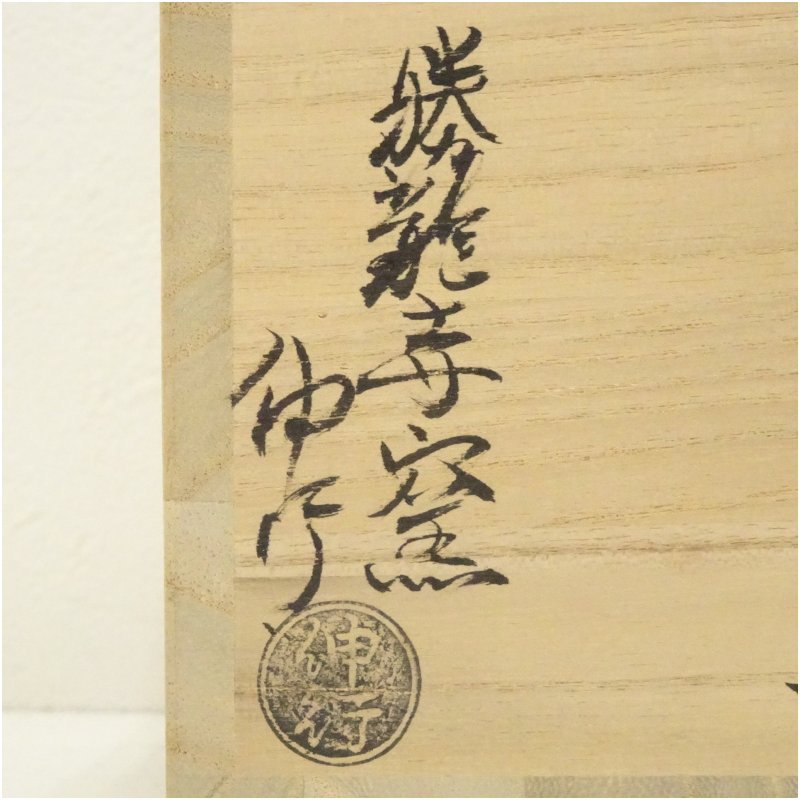 勝龍寺窯
伸行
伸行